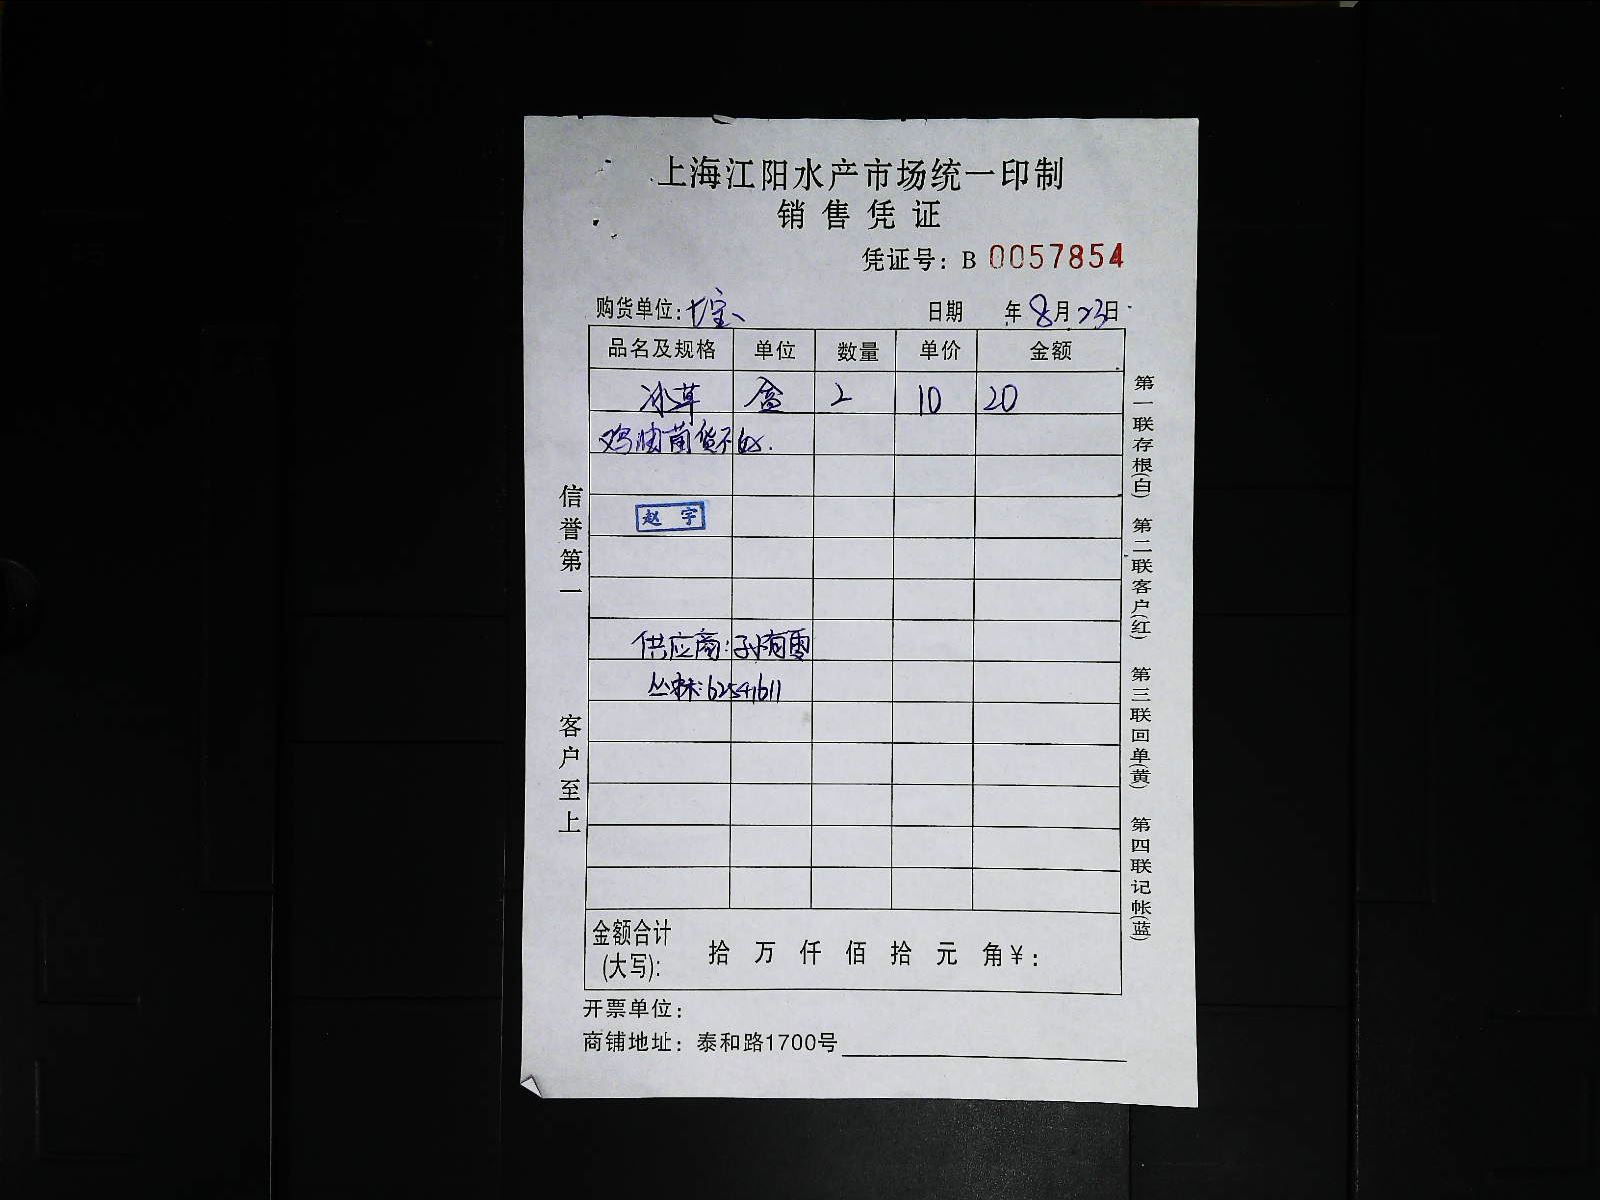 上海江阳水产市场统一印制
销售凭证
凭证号：B 0057854
购货单位：七宝 日期 年8月23日
品名及规格 单位 数量 单价 金额
冰草 盒 2 10 20
鸡油菌货不
赵宇
供应商：孙有雪
丛林：62541611
金额合计(大写)： 拾 万 仟 佰 拾 元 角￥：
开票单位：
商铺地址：泰和路1700号
信誉第一
客户至上
第一联存根(白) 第二联客户(红) 第三联回单(黄) 第四联记帐(蓝)